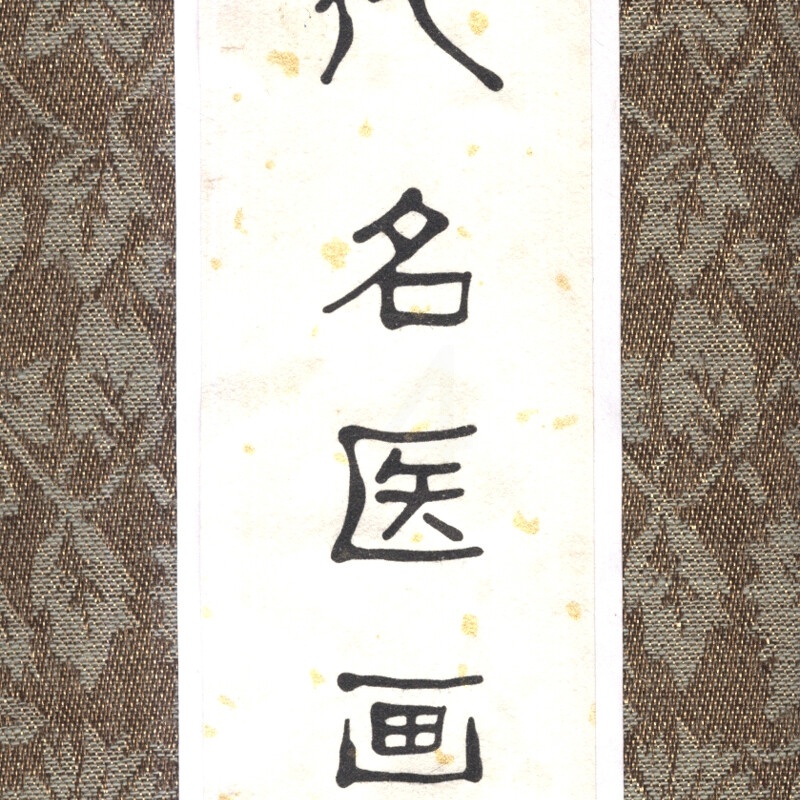 代名医画